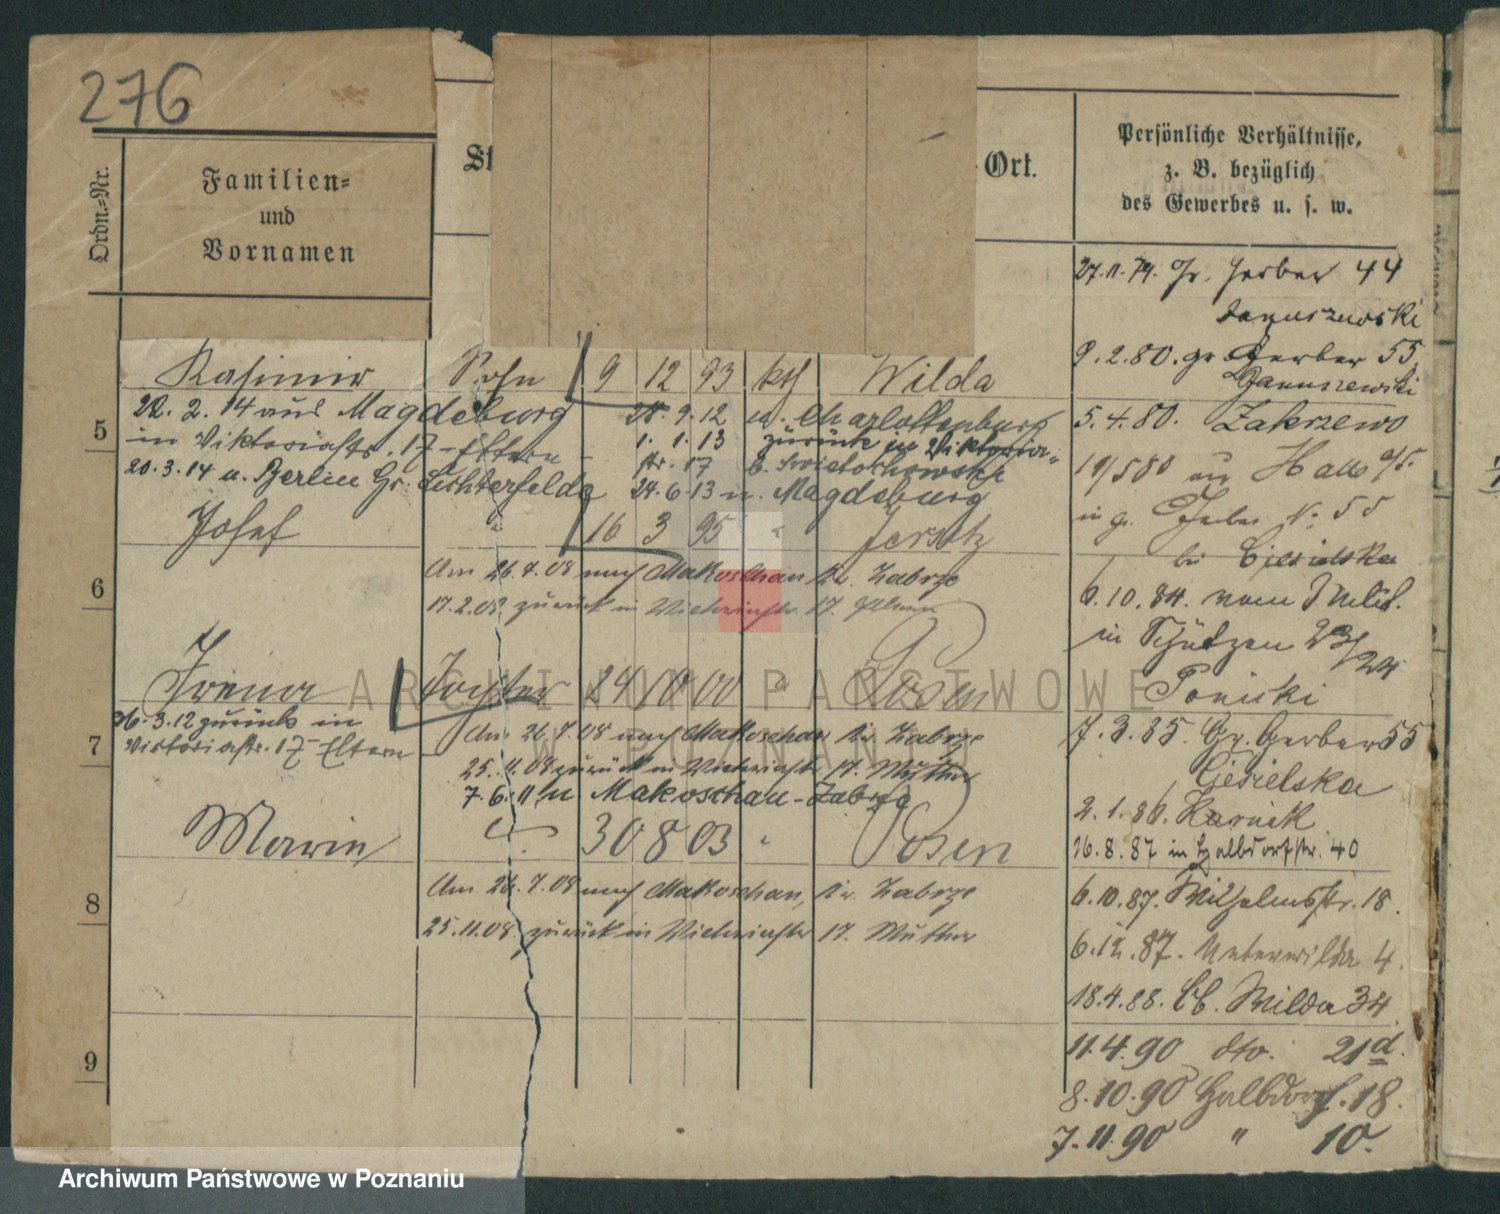 276
Ordn.=Nr.
Familien=
und
Vornamen
St
-Ort.
Persönliche Verhältnisse,
z. B. bezüglich
des Gewerbes u. s. w.
5
Kasimir Sohn 9 12 93 kth Wilda
22. 2. 14 aus Magdeburg
in Viktoriastr. 17 - Eltern
20.3.14 n. Berlin Gr. Lichterfelde
28.9.12 n. Charlottenburg
1.1.13 zurück in Viktoria-
str. 17 b. Swietochowski
24.6.13 n. Magdeburg
6
Josef " 16 3 95 " Jersitz
Am 26.7.08 nach Makoschau Kr. Zabrze
zurück in 17.
7
Irena Tochter 24 10 00 " Posen
26.3.12 zurück in
Viktoriastr. 17 Eltern
Am 26.7.08 nach Makoschau Kr. Zabrze
25.11.08 zurück in 17. Mutter
7.6.11 n. Makoschau-Zabrze
8
Marie 30 8 03 " Posen
Am 26.7.08 nach Makoschau, Kr. Zabrze
25.11.08 zurück in 17. Mutter
9
27.11.79. Gr. Gerber 44
Januszewski
9.2.80. gr Gerber 55
Januszewski
5.4.80. Zakrzewo
19/5 80 aus Halle a/S.
in gr. Gerber N. 55
bei Ciesielska
6.10.84. vom Milit.
in Schützen 23/24
Ponicki
7.3.85. Gr. Gerber 55
Ciesielska
2.1.86. Kurnik
16.8.87 in Halbdorfstr. 40
6.10.87. Wilhelmsstr. 18.
6.12.87. Unterwilda 4.
18.4.88. Wilda 34
11.4.90 dto. 21d.
8.10.90 Halbdorf. 18.
7.11.90 " 10.
ARCHIWUM PAŃSTWOWE
W POZNANIU
Archiwum Państwowe w Poznaniu